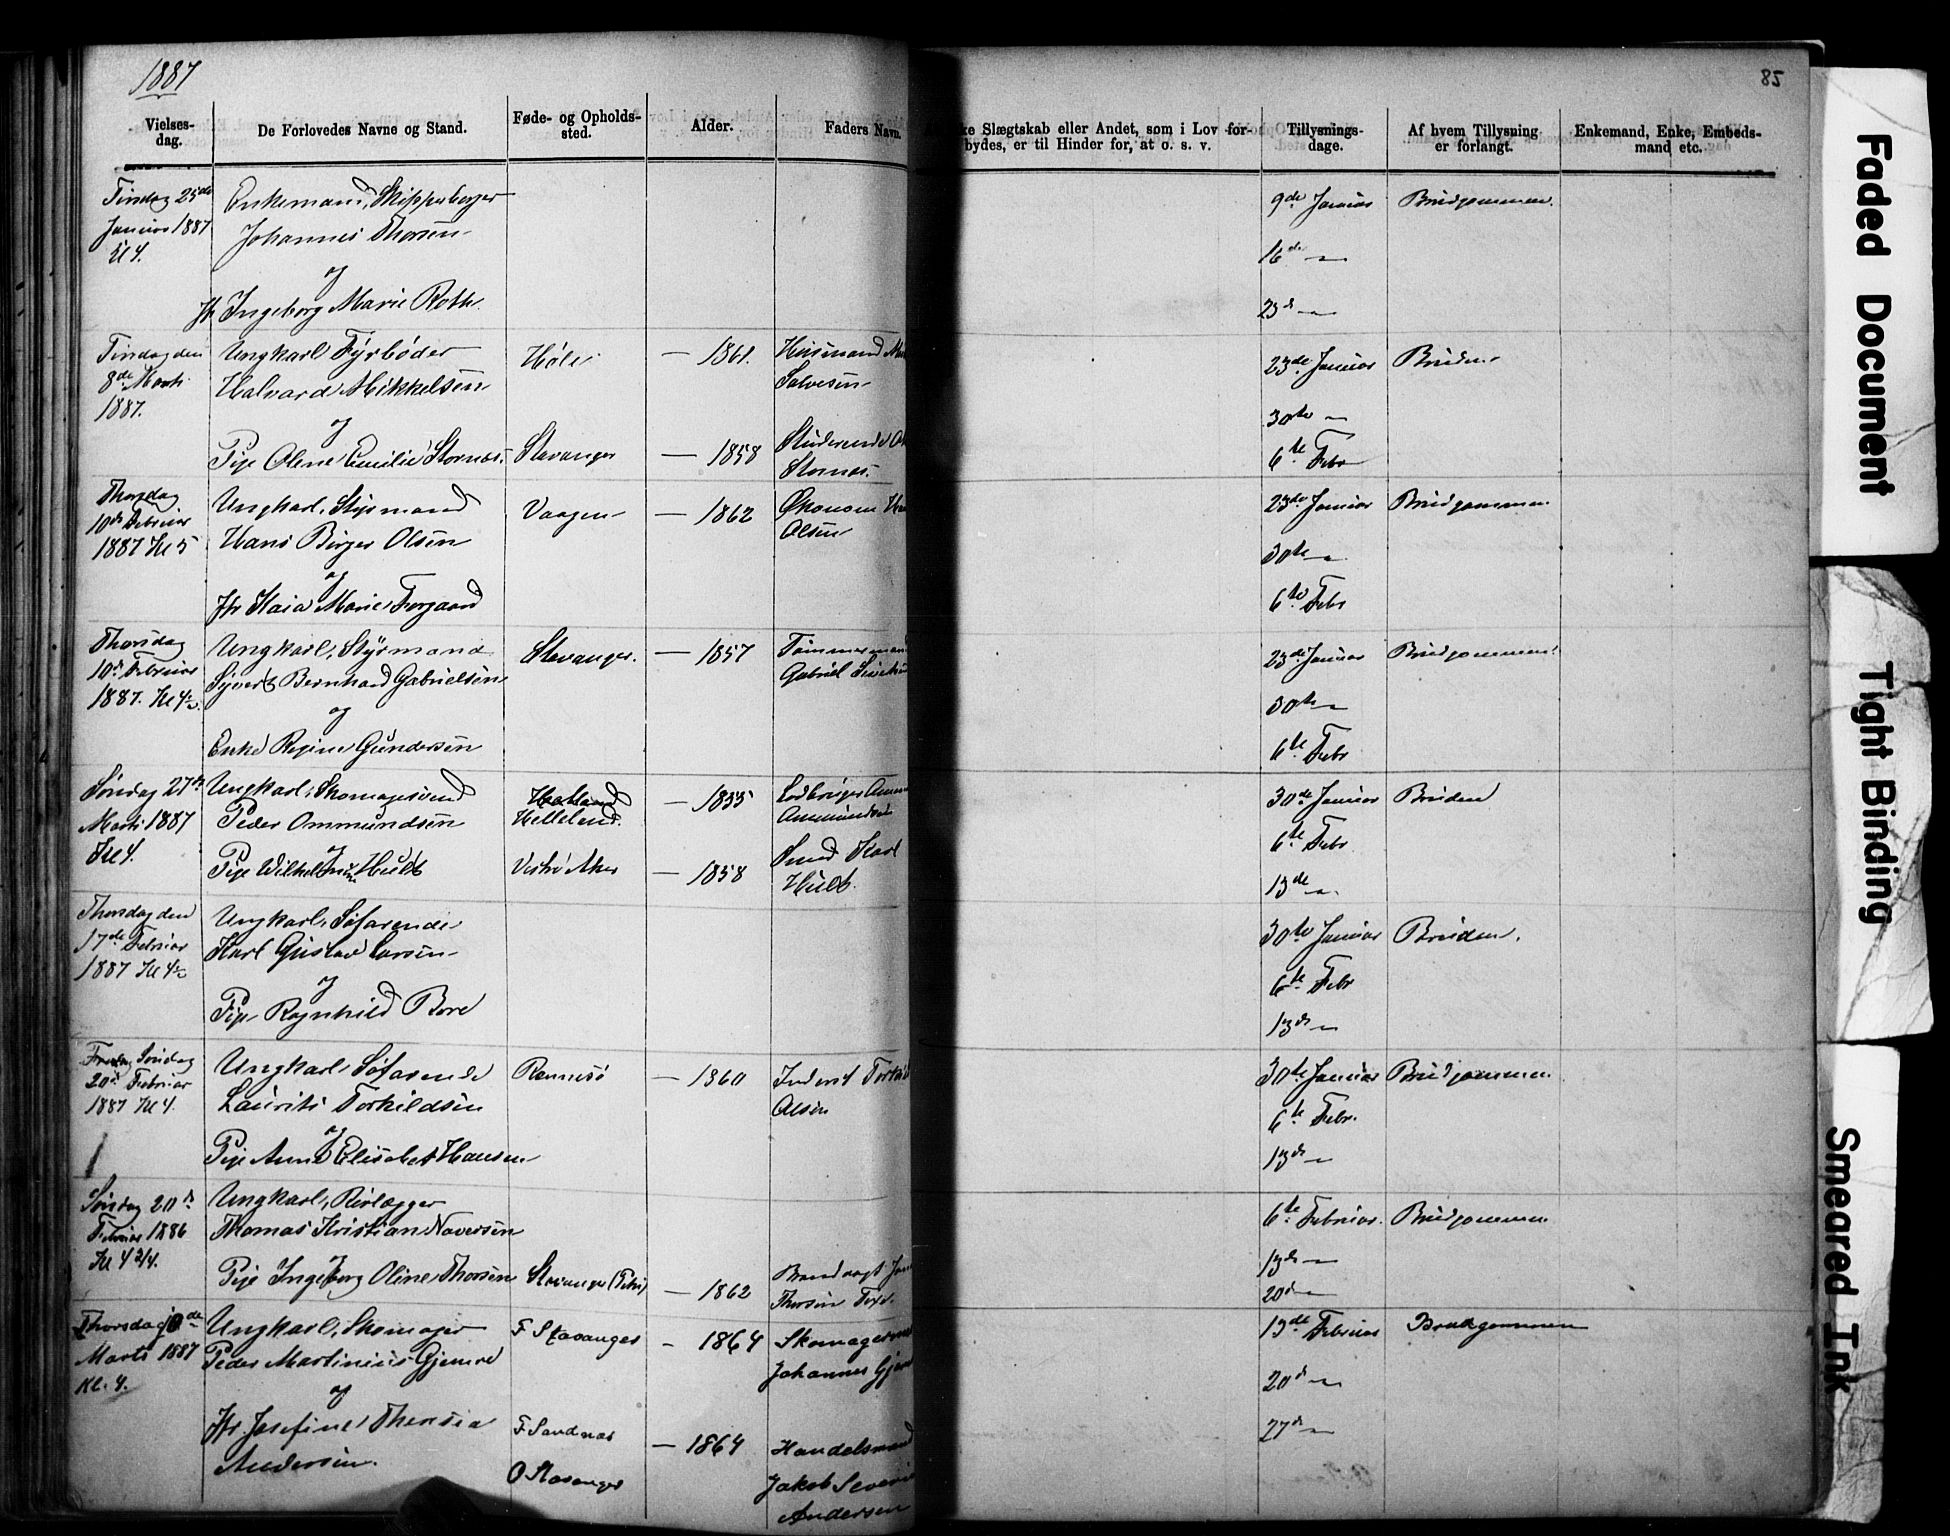 1887
85
Vielses-
dag.
De Forlovedes Navne og Stand.
Føde- og Opholds-
sted.
Alder.
Faders Navn.
ke Slægtskab eller Andet, som i Lov for-
bydes, er til Hinder for, at o. s. v.
Tillysnings-
dage.
Af hvem Tillysning
er forlangt.
Enkemand, Enke, Embeds-
mand etc.
Tirsdag 25de
Januar 1887
Kl 4.
Enkemand, Skipperborger
Johannes Thorsen
og
Jfr Ingeborg Marie Roth.
9de Januar
16de —
23de —
Brudgommen.
Tirsdag den
8de Marts
1887.
Ungkarl Fyrbøder
Halvard Mikkelsen
og
Pige Oline Emilie Stornæs.
Høle
Stavanger
— 1861.
— 1858
Husmand
Salvesen
Studerende
Stornæs.
23de Januar
30te —
6te Febr
Bruden
Thorsdag
10de Februar
1887 Kl 5
Ungkarl, Styrmand
Hans Birger Olsen
og
Jfr Kaia Marie Torgaard
Vaagen
— 1862
Økonom
Olsen
23de Januar
30te —
6te Febr
Brudgommen
Thorsdag
10de Februar
1887. Kl 4½.
Ungkarl, Styrmand
Syvert Bernhard Gabrielsen
og
Enke Regine Gundersen
Stavanger.
— 1857
Tømmermand
Gabriel
23de Januar
30te —
6te Febr
Brudgommen
Søndag 27de
Marts 1887
Kl 4.
Ungkarl, Skomagersvend
Peder Ommundsen
og
Pige Wilhelmine Hult
Helleland.
Vestre Aker
— 1855
— 1858
Ommundsen
Smed Karl
Hult.
30te Januar
6te Febr
13de —
Bruden
Thorsdag den
17de Februar
1887 Kl 4½
Ungkarl, Søfarende
Karl Gustav Larsen
og
Pige Ragnhild Bore
30te Januar
6te Febr
13de —
Bruden.
Fredag Søndag
20de Februar
1887 Kl 4.
Ungkarl, Søfarende
Laurits Torkildsen
og
Pige Anne Elisabet Hansen
Rennesø
— 1860
Inderst
Olsen
30te Januar
6te Febr.
13de —
Brudgommen
Søndag 20de
Februar 1886
Kl 4 3/4.
Ungkarl, Rørlægger
Thomas Kristian Naversen
og
Pige Ingeborg Oline Thorsen
Stavanger (Petri)
— 1862
Brandvagt
Thorsen
6te Februar.
13de —
20de —
Brudgommen
Thorsdag 10de
Marts 1887
Kl. 4.
Ungkarl, Skomager
Peder Martinius Gjemre
og
Jfr. Josefine Theresia
Andersen.
F Stavanger
F Sandnæs
O Stavanger
— 1864
— 1864
Skomager
Johannes
Handelsmand
Jakob
Andersen
13de Februar
20de —
27de —
Brudgommen
Faded Document
Tight Binding
Smeared Ink